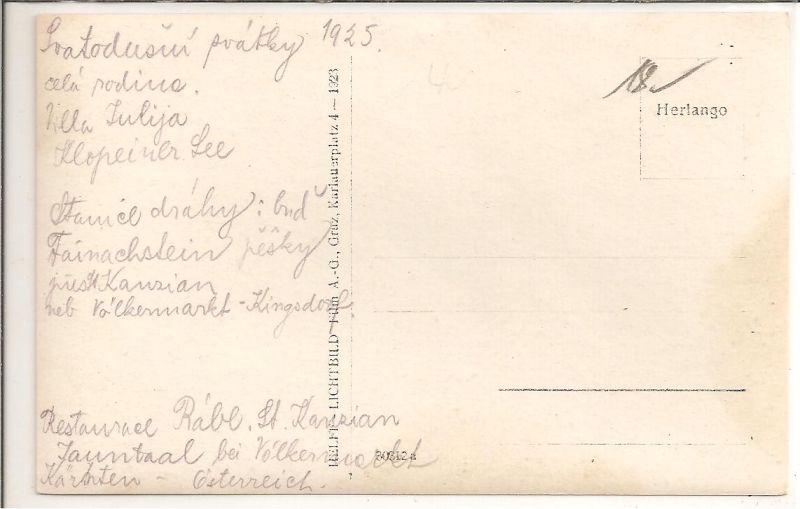 Svatodušní svátky 1925.
celá rodina.
Villa Julija
Klopeiner See
Stanice dráhy: buď
Tainachstein pěšky
přes St Kanzian
neb Völkermarkt - Kingsdorf.
Restaurace Rábl, St. Kanzian
Jauntaal bei Völkermarkt
Kärnten - Österreich.
HELFF - LICHTBILD - Film A.-G., Graz, Karlauerplatz 4 — 1923
18
Herlango